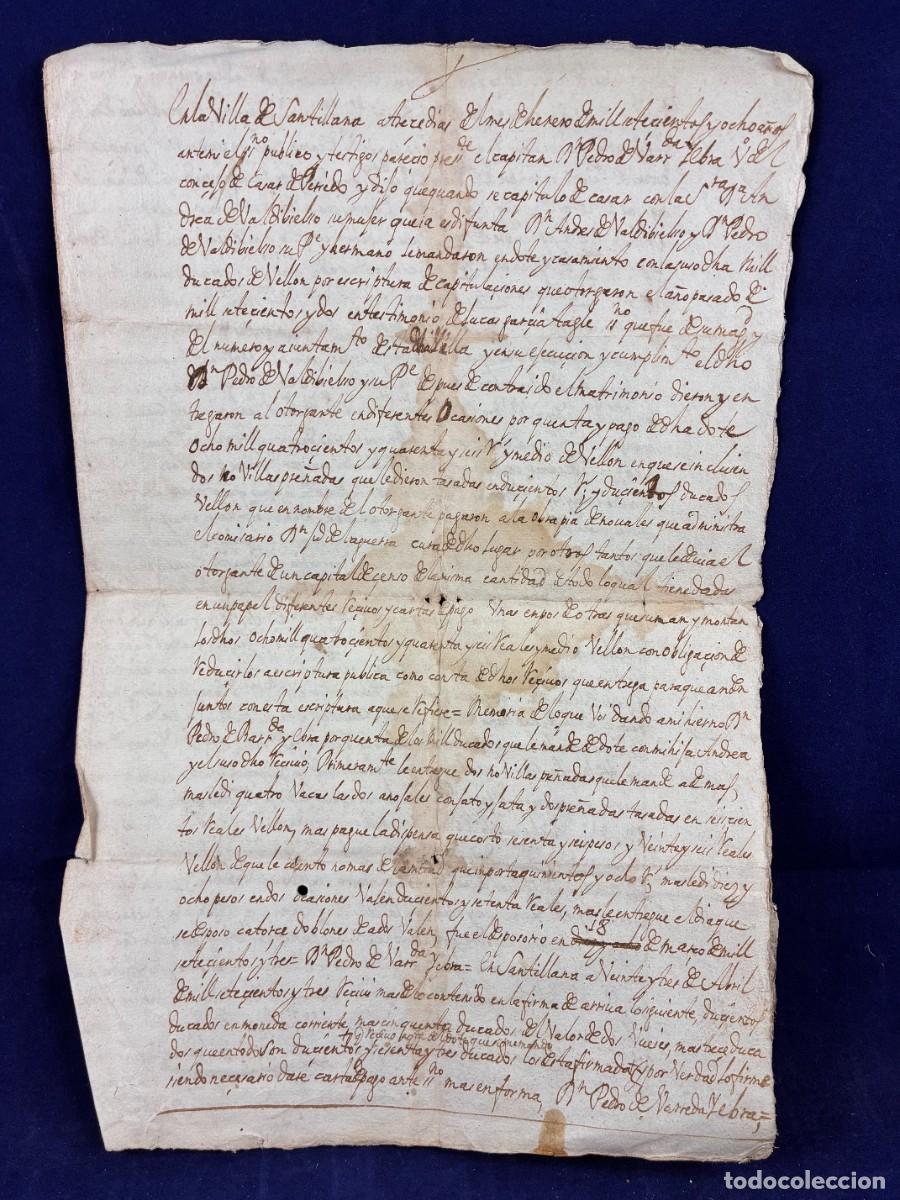 En la Villa de Santillana a trece dias del mes de henero de mill setecientos y ocho años
ante mi el ss.no publico y testigos parecio pres.te el capitan D.n Pedro de Varr.da Yebra V.o del
concejo de Casar de Periedo y dijo que quando se capitulo de casar con la S.ra D.a An
drea de Valdibielso su mujer que ia es difunta D.n Andres de Valdibielso y D.n Pedro
de Valdibielso su P.e y hermano le mandaron en dote y casamiento con la suso dha mill
ducados de Vellon por escriptura de capitulaciones que otorgaron el año pasado de
mill setecientos y dos en testimonio de Lucas garcia tagle ss.no que fue de su mag.d y
del numero y aiuntam.to de esta dha Villa y en su ejecucion y cumplim.to el dho
D.n Pedro de Valdibielso y su P.e despues de contraido el matrimonio dieron y en
tregaron al otorgante en diferentes Ocasiones por quenta y pago de dha dote
Ocho mill quatrocientos y quarenta y seis R.s y medio de Vellon en que se incluien
dos noVillas preñadas que le dieron tasadas en ducientos R.s y ducientos ducados
Vellon que en nombre del otorgante pagaron a la obra pia de nouales que administra
el comisario D.n de la guerra cura de dho lugar por otros tantos que le deuia el
otorgante de un capital de censo de la misma cantidad de todo lo qual tiene dadas
en un papel diferentes Reciuos y cartas de pago Unas en pos de otras que suman y montan
los dhos ocho mill quatrocientos y quarenta y seis Reales y medio Vellon con obligacion de
Reducirlos a escriptura publica como consta de dhos Reciuos que entrega para que anden
juntos con esta escriptura a que se Refiere = Memoria de lo que Voi dando a mi hierno D.n
Pedro de Barr.da y Ebra por quenta de los mill ducados que le mande de dote con mi hija Andrea
y el suso dho Reciuio, Primeram.te le entregue dos noVillas preñadas que le mande ademas,
mas le di quatro Vacas las dos anojales con jato y jata y dos preñadas tasadas en seiscien
tos Reales Vellon, mas pague la dispensa que costo sesenta y seis pesos y Veinte y seis Reales
Vellon de que le cuento no mas de la mitad que importa quinientos y ocho R.s, mas le di diez y
ocho pesos en dos ocasiones Valen ducientos y setenta Reales, mas le entregue el dia que
se desposo catorce doblones de a dos Valen, fue el desposorio en 18 de março de mill
setecientos y tres = D.n Pedro de Varr.da Yebra = En Santillana a Veinte y tres de Abril
de mill setecientos y tres Reciui mas de lo contenido en la firma de arriva lo siguiente, ducientos
ducados en moneda corriente, mas cinquenta ducados del Valor de dos Vueies, mas trece duca
dos que en todo son ducientos y sesenta y tres ducados los esta firmado y por Verdad lo firme
siendo necesario dare carta de pago ante ss.no mas en forma, D.n Pedro de Varreda Yebra =
todocoleccion